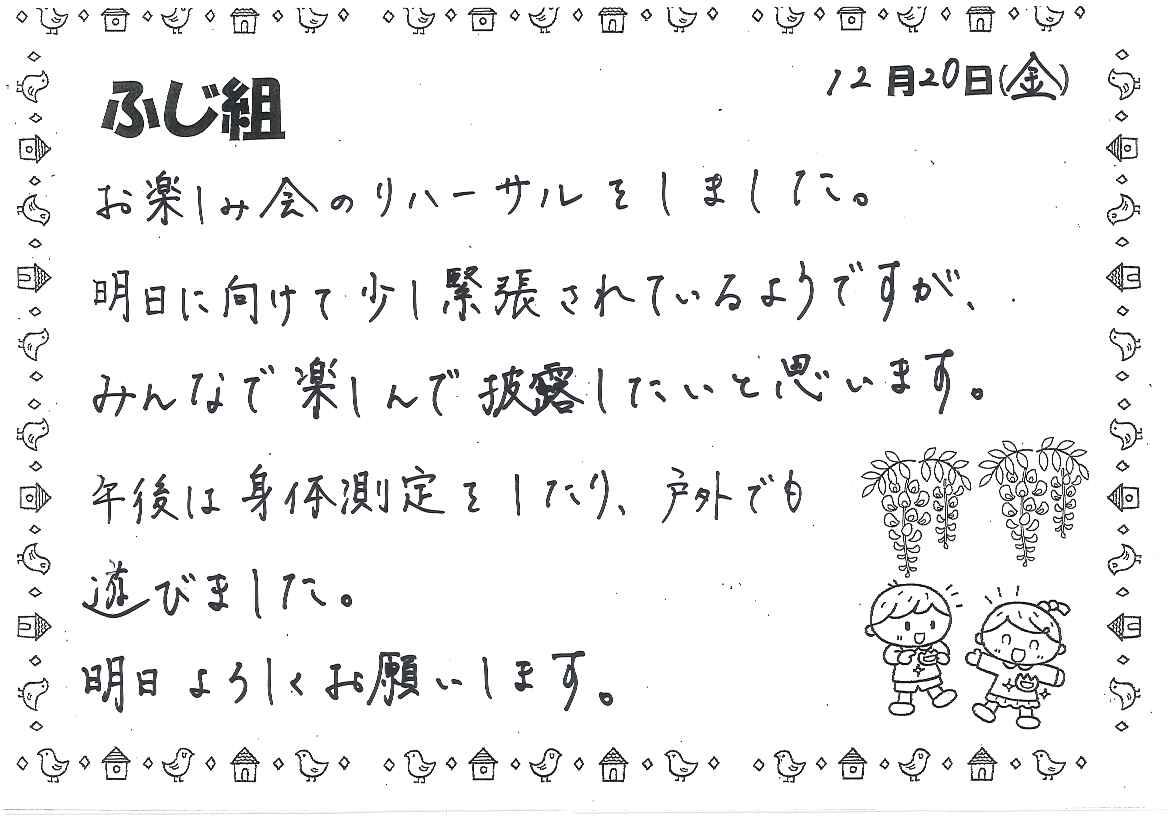 12月20日(金)
ふじ組
お楽しみ会のリハーサルをしました。
明日に向けて少し緊張されているようですが、
みんなで楽しんで披露したいと思います。
午後は身体測定をしたり、戸外でも
遊びました。
明日よろしくお願いします。